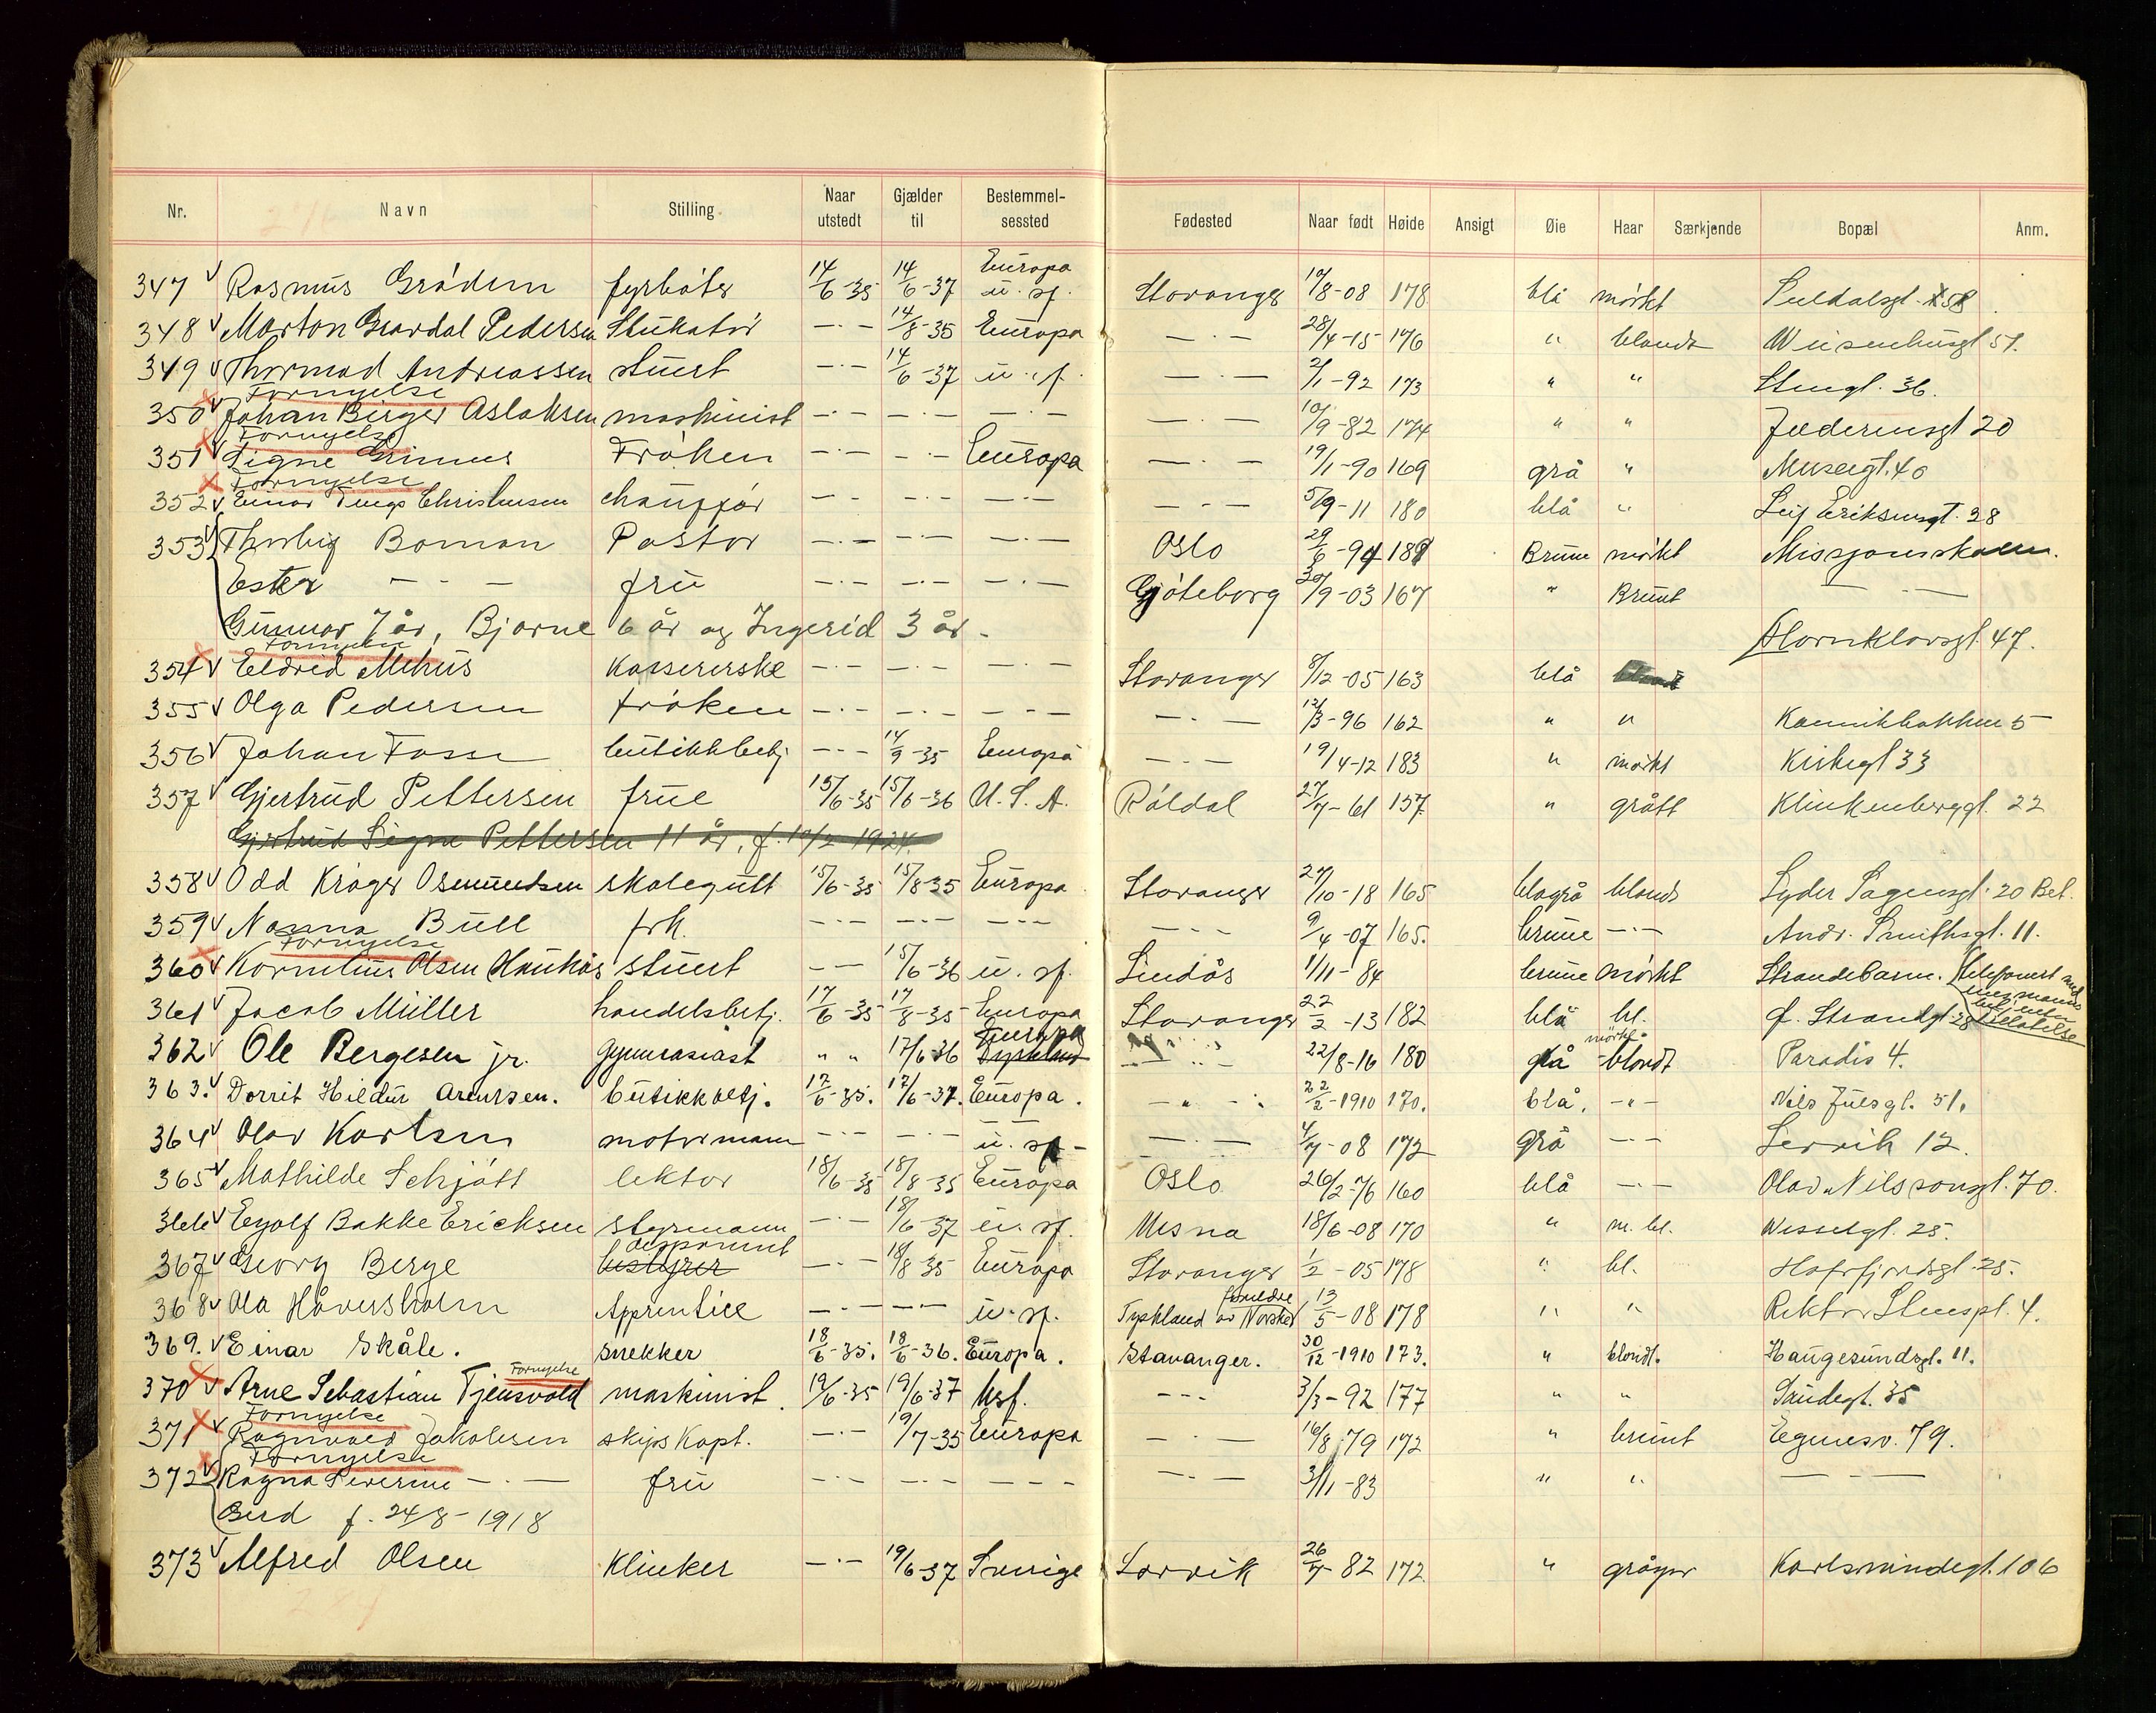 Nr. Navn Stilling Naar utstedt Gjælder til Bestemmelsessted Fødested Naar født Høide Ansigt Øie Haar Særkjende Bopæl Anm.
347 Rasmus Grødem fyrbøter 14/6-35 14/6-37 Europa u. sf. Stavanger 10/8-08 178 blå mørkt Suldalsgt. 58
348 Morton Grardal Pedersen Stukatør —·— 14/8-35 Europa —·— 28/4-15 176 " blondt Weisenhusgt 51.
349 Thormod Andreassen stuert —·— 14/6-37 u. sf. —·— 2/1-92 173 " " Stengt. 36.
Fornyelse
350 Johan Birger Aslaksen maskinist —·— —·— —·— —·— 10/9-82 174 " " Jæderensgt 20
Fornyelse
351 Signe Grimnes Frøken —·— —·— Europa —·— 19/1-90 169 grå " Museegt. 40
Fornyelse
352 Einar Tengs Christensen chauffør —·— —·— —·— —·— 5/9-11 180 blå " Leif Eriksensgt. 28
353 Thorbjø Boman Pastor —·— —·— —·— Oslo 29/6-94 189 Brune mørkt Missjonsskolen.
Ester —·— fru —·— —·— —·— Gjøteborg 30/9-03 167 " Brunt —·—
Gunnar 7 år, Bjarne 6 år og Ingerid 3 år.
Fornyelse
354 Eldrid Mehus Kassererske —·— —·— —·— Stavanger 8/12-05 163 blå blondt Hornklovsgt. 47.
355 Olga Pedersen frøken —·— —·— —·— —·— 12/3-96 162 " " Kannikbakken 5
356 Johan Fosse butikkbetj —·— 14/9-35 Europa —·— 19/4-12 183 " mørkt Kirkegt 33
357 Gjertrud Pettersen frue 15/6-35 15/6-36 U.S.A. Røldal 27/7-61 157 " grått Klinkenberggt. 22
Gjertrud Signe Pettersen 11 år, f. 10/2 1924.
358 Odd Krøger Osmundsen skolegutt 15/6-35 15/8-35 Europa Stavanger 27/10-18 165 blågrå blondt Lyder Sagensgt. 20 Bel.
359 Nanna Bull frk. —·— —·— —·— —·— 9/4-07 165. brune —·— Andr. Smithsgt. 11.
Fornyelse
360 Kornelius Olsen Haukås stuert —— 15/6-36 u. sf. Lindås 1/11-84 brune mørkt Strandebarm.
361 Jacob Müller handelsbetj. 17/6-35 17/8-35 Europa Stavanger 22/2-13 182 blå bl. Strandgt 28
362 Ole Bergesen jr. Gymnasiast " " 17/6 36 Tyskland Europa —·— 22/8-16 180 grå mørkt -blondt Paradis 4.
363. Dorrit Hildur Arentsen. butikkbetj. 17/6-35. 17/6-37. Europa. —"— 22/2-1910 170. blå. —"— Nils Juelsgt. 51.
364 Olav Karlsen motormann —·— —·— u. sf. —·— 4/7-08 172 grå —·— Lervik 12.
365 Mathilde Schjøtt lektor 18/6-35 18/8-35 Europa Oslo 26/2-76 160 blå —·— Olav Nilssonsgt. 70.
366 Eyolf Bakke Ericksen styrmann —·— 18/6 37 u. sf. Mosna 18/6-08 170 " m. bl. Wesselgt. 25.
367 Georg Berge bestyrer disponent —·— 18/8 35 Europa Stavanger 1/2-05 178 " bl. Hafrsfjordsgt. 25.
368 Ola Håversholm Apprentice —·— —·— u. sf. Tyskland av Norske foreldre 13/5-08 178 " " Rektor Steenspl. 4.
369. Einar Skåle. snekker 18/6-35. 18/6-36. Europa. Stavanger. 30/12-1910 173. " blondt. Haugesundsgt. 11.
Fornyelse
370 Arne Sebastian Tjensvold maskinist. 19/6-35 19/6-37 Usf. --- 3/3-92 177 " " Saudegt. 35
Fornyelse
371 Ragnvald Jakobsen skips Kapt. —·— 19/7-35 Europa —·— 16/8 79 172 " brunt Egnesv. 79.
Fornyelse
372 Ragna Severine —·— fru —·— —·— --- —·— 3/11-83 " " —·—
Gerd f. 24/8-1918
373 Alfred Olsen Klinker —·— 19/6-37 Sverige Larvik 26/7-82 172 " gråspr Karlsmindegt. 106